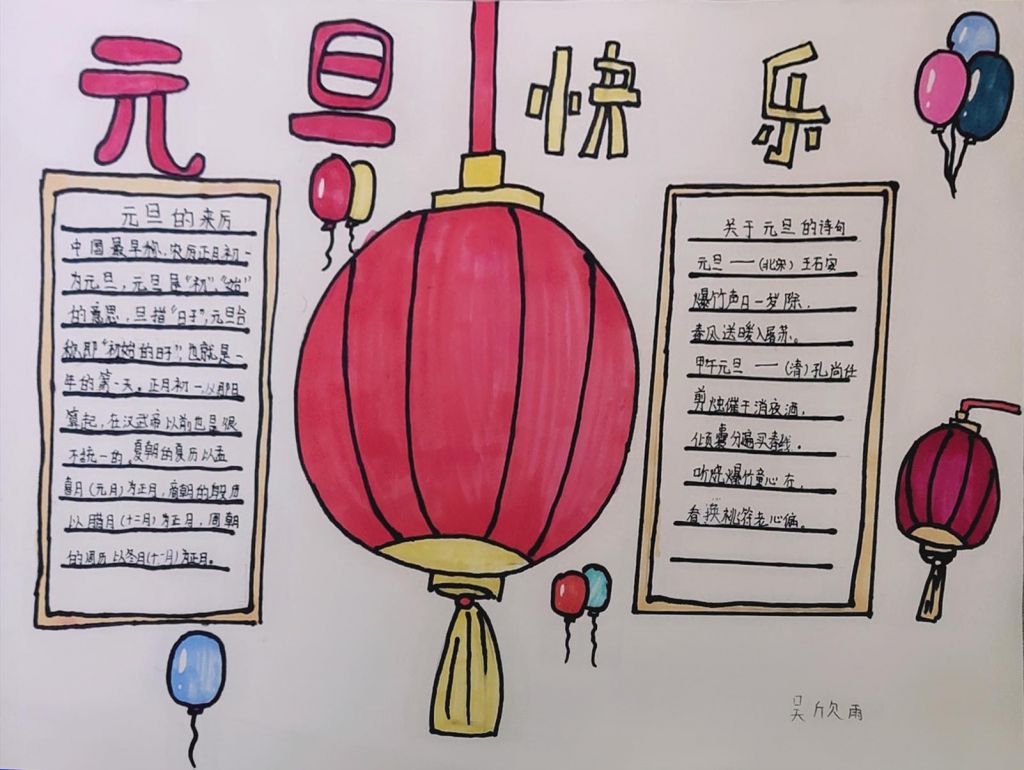 元旦快乐
元旦的来历
中国最早称，农历正月初一
为元旦，元旦是"初"，"始"
的意思，旦指"日子"，元旦合
称即"初始的日子"，也就是一
年的第一天。正月初一从那日
算起，在汉武帝以前也是很
不统一的。夏朝的夏历以孟
喜月（元月）为正月，商朝的殷历
以腊月（十二月）为正月，周朝
的周历以冬月（十一月）为正月。
关于元旦的诗句
元旦——（北宋）王石安
爆竹声日一岁除，
春风送暖入屠苏。
甲午元旦——（清）孔尚任
剪烛催干消夜酒，
倾囊分遍买春钱。
听烧爆竹童心在，
看换桃符老心偏。
吴欣雨